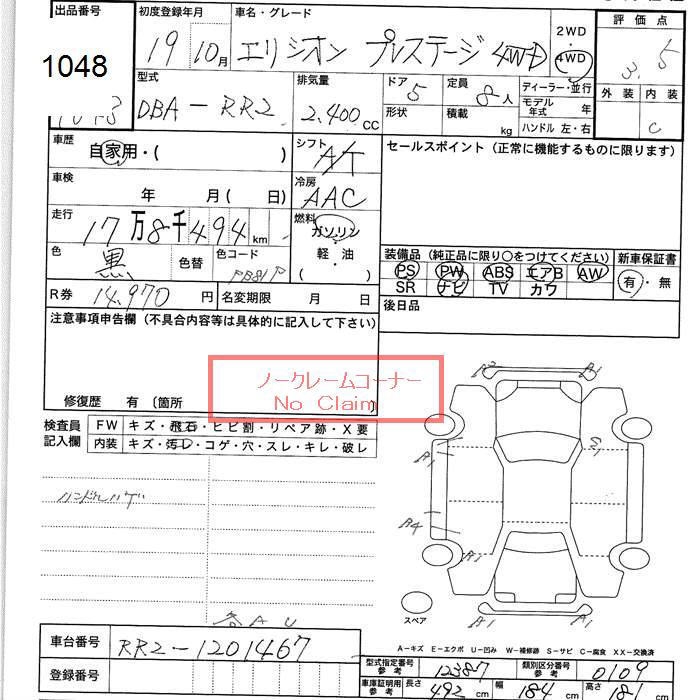 出品番号 初度登録年月 車名・グレード 2WD・4WD 評価点
1048 19 10月 エリシオン プレステージ 4WD 3.5
型式 排気量 ドア 定員 ディーラー・並行 外装 内装
DBA-RR2 2,400cc 5 8人 モデル年式 年 C
形状 積載 kg ハンドル 左・右
車歴 シフト セールスポイント (正常に機能するものに限ります)
自家用・( ) A/T
車検 冷房
年 月( 日) AAC
走行 燃料
17万8千494km ガソリン
色 色替 色コード 軽・油
黒 ( ) 装備品 (純正品に限り○をつけてください) 新車保証書
PS PW ABS エアB AW 有・無
SR ナビ TV カワ
R券 14,970円 名変期限 月 日 後日品
注意事項申告欄 (不具合内容等は具体的に記入して下さい)
ノークレームコーナー
No Claim
修復歴 有 〔箇所 〕
検査員記入欄 FW キズ・飛石・ヒビ割・リペア跡・X要
内装 キズ・汚レ・コゲ・穴・スレ・キレ・破レ
ハンドルハゲ
A2 A1
A1
A4
A1 A1
スペア
各AU
A-キズ E-エクボ U-凹み W-補修跡 S-サビ C-腐食 XX-交換済
車台番号 RR2-1201467
型式指定番号 参考 12387 類別区分番号 参考 0109
登録番号
車庫証明用 参考 長さ 492cm 幅 184cm 高さ 181cm